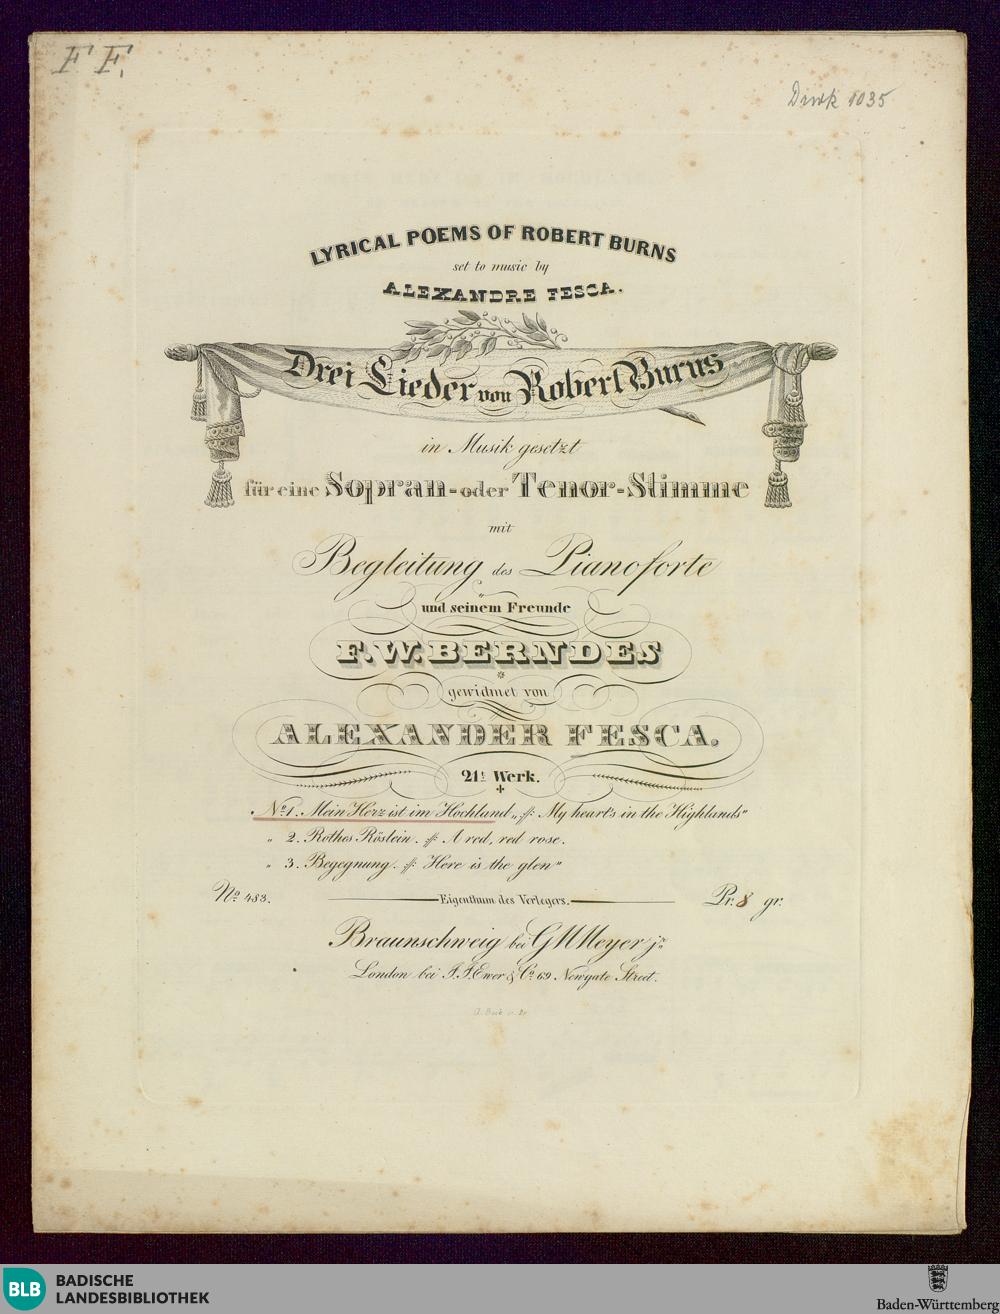 F F.
Druck 1035
LYRICAL POEMS OF ROBERT BURNS
set to music by
ALEXANDRE FESCA.
Drei Lieder von Robert Burns
in Musik gesetzt
für eine Sopran- oder Tenor-Stimme
mit
Begleitung des Pianoforte
und seinem Freunde
F. W. BERNDES
gewidmet von
ALEXANDER FESCA.
21t. Werk.
No. 1. Mein Herz ist im Hochland „ My heart's in the Highlands"
" 2. Rothes Röslein. A red, red rose.
" 3. Begegnung. Here is the glen"
No. 483. Eigenthum des Verlegers. Pr. 8 gr.
Braunschweig bei G M Meyer jr.
London bei J. J. Ewer & Co. 69 Newgate Street.
BLB BADISCHE
LANDESBIBLIOTHEK
Baden-Württemberg